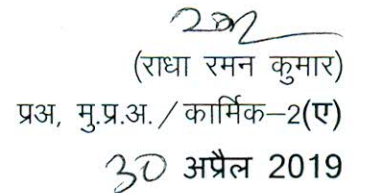 (राधा रमन कुमार)
प्रअ, मु.प्र.अ./कार्मिक–2(ए)
30 अप्रैल 2019